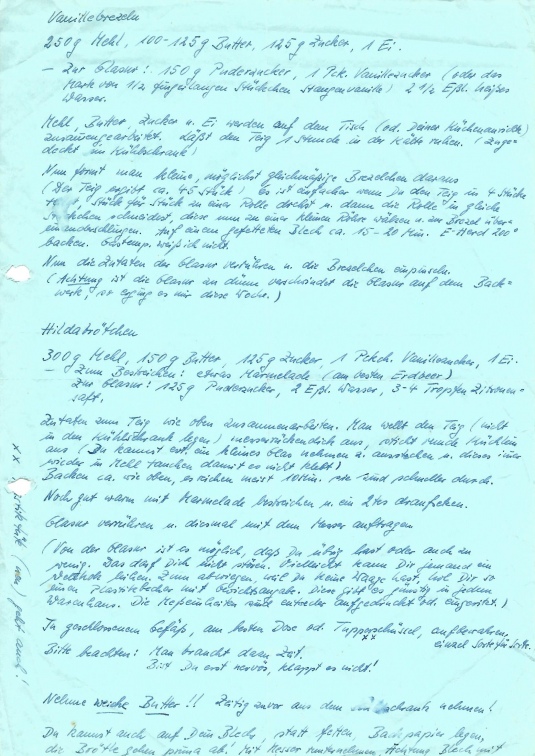 Vanillebrezeln
250g Mehl, 100-125g Butter, 125g Zucker, 1 Ei.
- Zur Glasur: 150g Puderzucker, 1 Pck. Vanillzucker (oder das
Mark von 1/2 fingerlangen Stückchen Stangenvanille) 2 1/2 Eßl. heißes
Wasser.
Mehl, Butter, Zucker u. Ei werden auf dem Tisch (od. Deiner Küchenanrichte)
zusammengearbeitet. Läßt den Teig 1 Stunde in der Kälte ruhen. (Zuge-
deckt im Kühlschrank!
Nun formt man kleine, möglichst gleichmäßige Brezelchen daraus
(Der Teig ergibt ca. 45 Stück! Es ist einfacher wenn Du den Teig in 4 Stücke
Stück für Stück zu einer Rolle drehst u. dann die Rolle in gleiche
schneidest, diese nun zu einer kleinen u. zur Brezel über-
einanderschlingen. Auf einem gefetteten Blech ca. 15-20 Min. E-Herd 200°
backen. Gastemp. weiß ich nicht.
Nun die Zutaten der Glasur verrühren u. die Brezelchen einpinseln.
(Achtung ist die Glasur zu dünn verschwindet die Glasur auf dem Back-
werk, so erging es mir diese Woche.)
Hildabrötchen
300g Mehl, 150g Butter, 125g Zucker, 1 Pckch. Vanillzucker, 1 Ei.
- Zum Bestreichen: etwas Marmelade (am besten Erdbeer)
Zur Glasur: 125g Puderzucker, 2 Eßl. Wasser, 3-4 Tropfen Zitronen-
saft.
Zutaten zum Teig wie oben zusammenarbeiten. Man wellt den Teig (nicht
in den Kühlschrank legen) messerrückendick aus, sticht runde Küchlein
aus (Du kannst evt. ein kleines Glas nehmen u. ausstechen u. dieses immer
wieder in Mehl tauchen damit es nicht klebt)
Backen ca. wie oben, es reichen meist 10 Min. sie sind schneller durch.
Noch gut warm mit Marmelade bestreichen u. ein 2tes draufkleben.
Glasur verrühren u. diesmal mit dem Messer auftragen
(Von der Glasur ist es möglich, daß Du übrig hast oder auch zu
wenig. Das darf Dich nicht stören. Vielleicht kann Dir jemand ein
leihen. Zum abwiegen, weil Du keine Waage hast, hol Dir so
einen Plastikbecher mit Gewichtsangabe. Diese gibt es günstig in jedem
Warenhaus. Die Maßeinheiten sind entweder aufgedruckt od. eingeritzt.)
In geschlossenem Gefäß, am besten Dose od. Tupperschüssel, aufbewahren,
xx einzeln Sorte für Sorte.
Bitte beachten: Man braucht dazu Zeit.
Bist Du erst nervös, klappt es nicht!
Nehme weiche Butter!! Zeitig zuvor aus dem schrank nehmen!
Du kannst auch auf Dein Blech, statt fetten, Backpapier legen,
die Brötle gehen prima ab! Mit Messer runternehmen, Achtung Blech mit
xx (neu) geht auch!